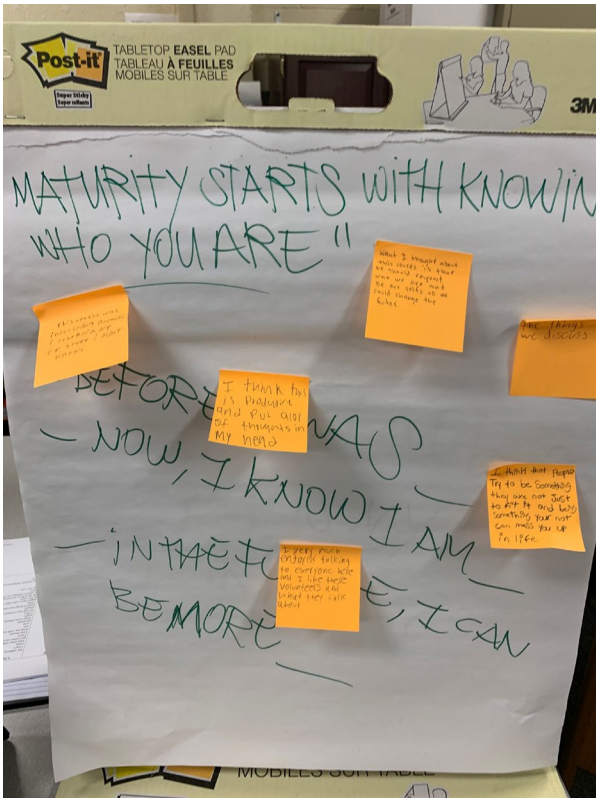 Post-it
Super Sticky
Super collants
TABLETOP EASEL PAD
TABLEAU À FEUILLES
MOBILES SUR TABLE
3M
MATURITY STARTS WITH KNOWIN
WHO YOU ARE"
What I thought about
this course is that
we should respect
who we are not
be our selfs so we
could change the
This course was
I learned
of stuff I didn't
know
The things
we discuss
BEFORE WAS
I think this
is productive
and put alot
of thoughts in
my head
- NOW, I KNOW I AM
I think that People
Try to be Something
they are not Just
to fit it and being
something your not
can mess you up
in life
- IN THE FU E, I CAN
BE MORE
I very much
enjoyed talking
to everyone here
and I like these
volunteers and
what they talk
about
MOBILES SUR TABLE